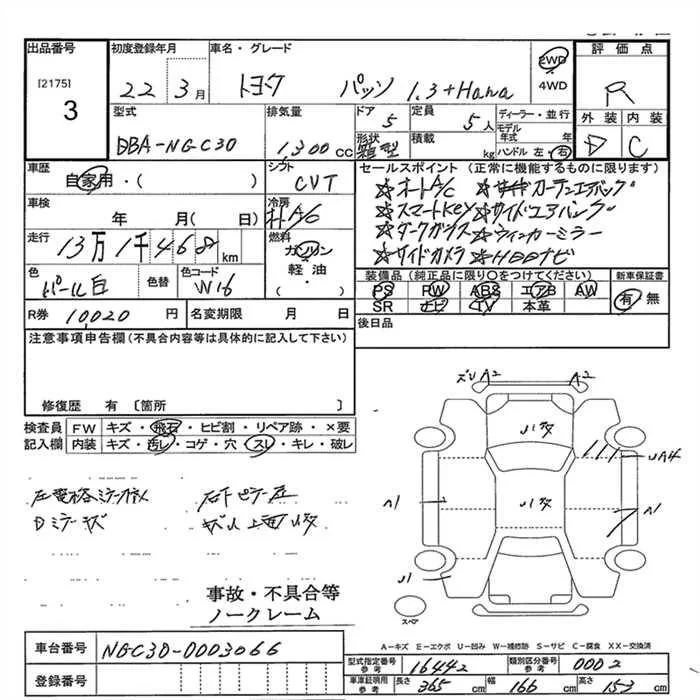 出品番号 初度登録年月 車名・グレード 評価点
[2175]
3
22 3月 トヨタ パッソ 1.3+Hana 2WD ・ 4WD R
型式 排気量 ドア 定員 ディーラー・並行 外装 内装
DBA-NGC30 1,300cc 5 5人 モデル年式 年 D C
形状 箱型 積載 kg ハンドル 左・右
車歴 自家用・( ) シフト CVT
セールスポイント(正常に機能するものに限ります)
☆オートA/C カーテンエアバッグ
車検 年 月( 日) 冷房 オートA/C
☆スマートKEY ☆サイドエアバッグ
☆ウィンカーミラー
走行 13万1千468km 燃料 ガソリン・軽油・( )
☆サイドカメラ ☆HDDナビ
色 パール白 色替 色コード W16
装備品(純正品に限り○をつけてください) 新車保証書
PS PW ABS エアB AW 有・無
SR ナビ TV 本革
R券 10,020円 名変期限 月 日
後日品
注意事項申告欄(不具合内容等は具体的に記入して下さい)
修復歴 有 〔箇所 〕
検査員記入欄 FW キズ・飛石・ヒビ割・リペア跡・×要
内装 キズ・汚レ・コゲ・穴・スレ・キレ・破レ
A2 A2
UA4
A1
A1
U1
スペア
事故・不具合等
ノークレーム
A-キズ E-エクボ U-凹み W-補修跡 S-サビ C-腐食 XX-交換済
車台番号 NGC30-0003066
登録番号
型式指定番号参考 16442 類別区分番号参考 0002
車庫証明用参考 長さ 365cm 幅 166cm 高さ 153cm